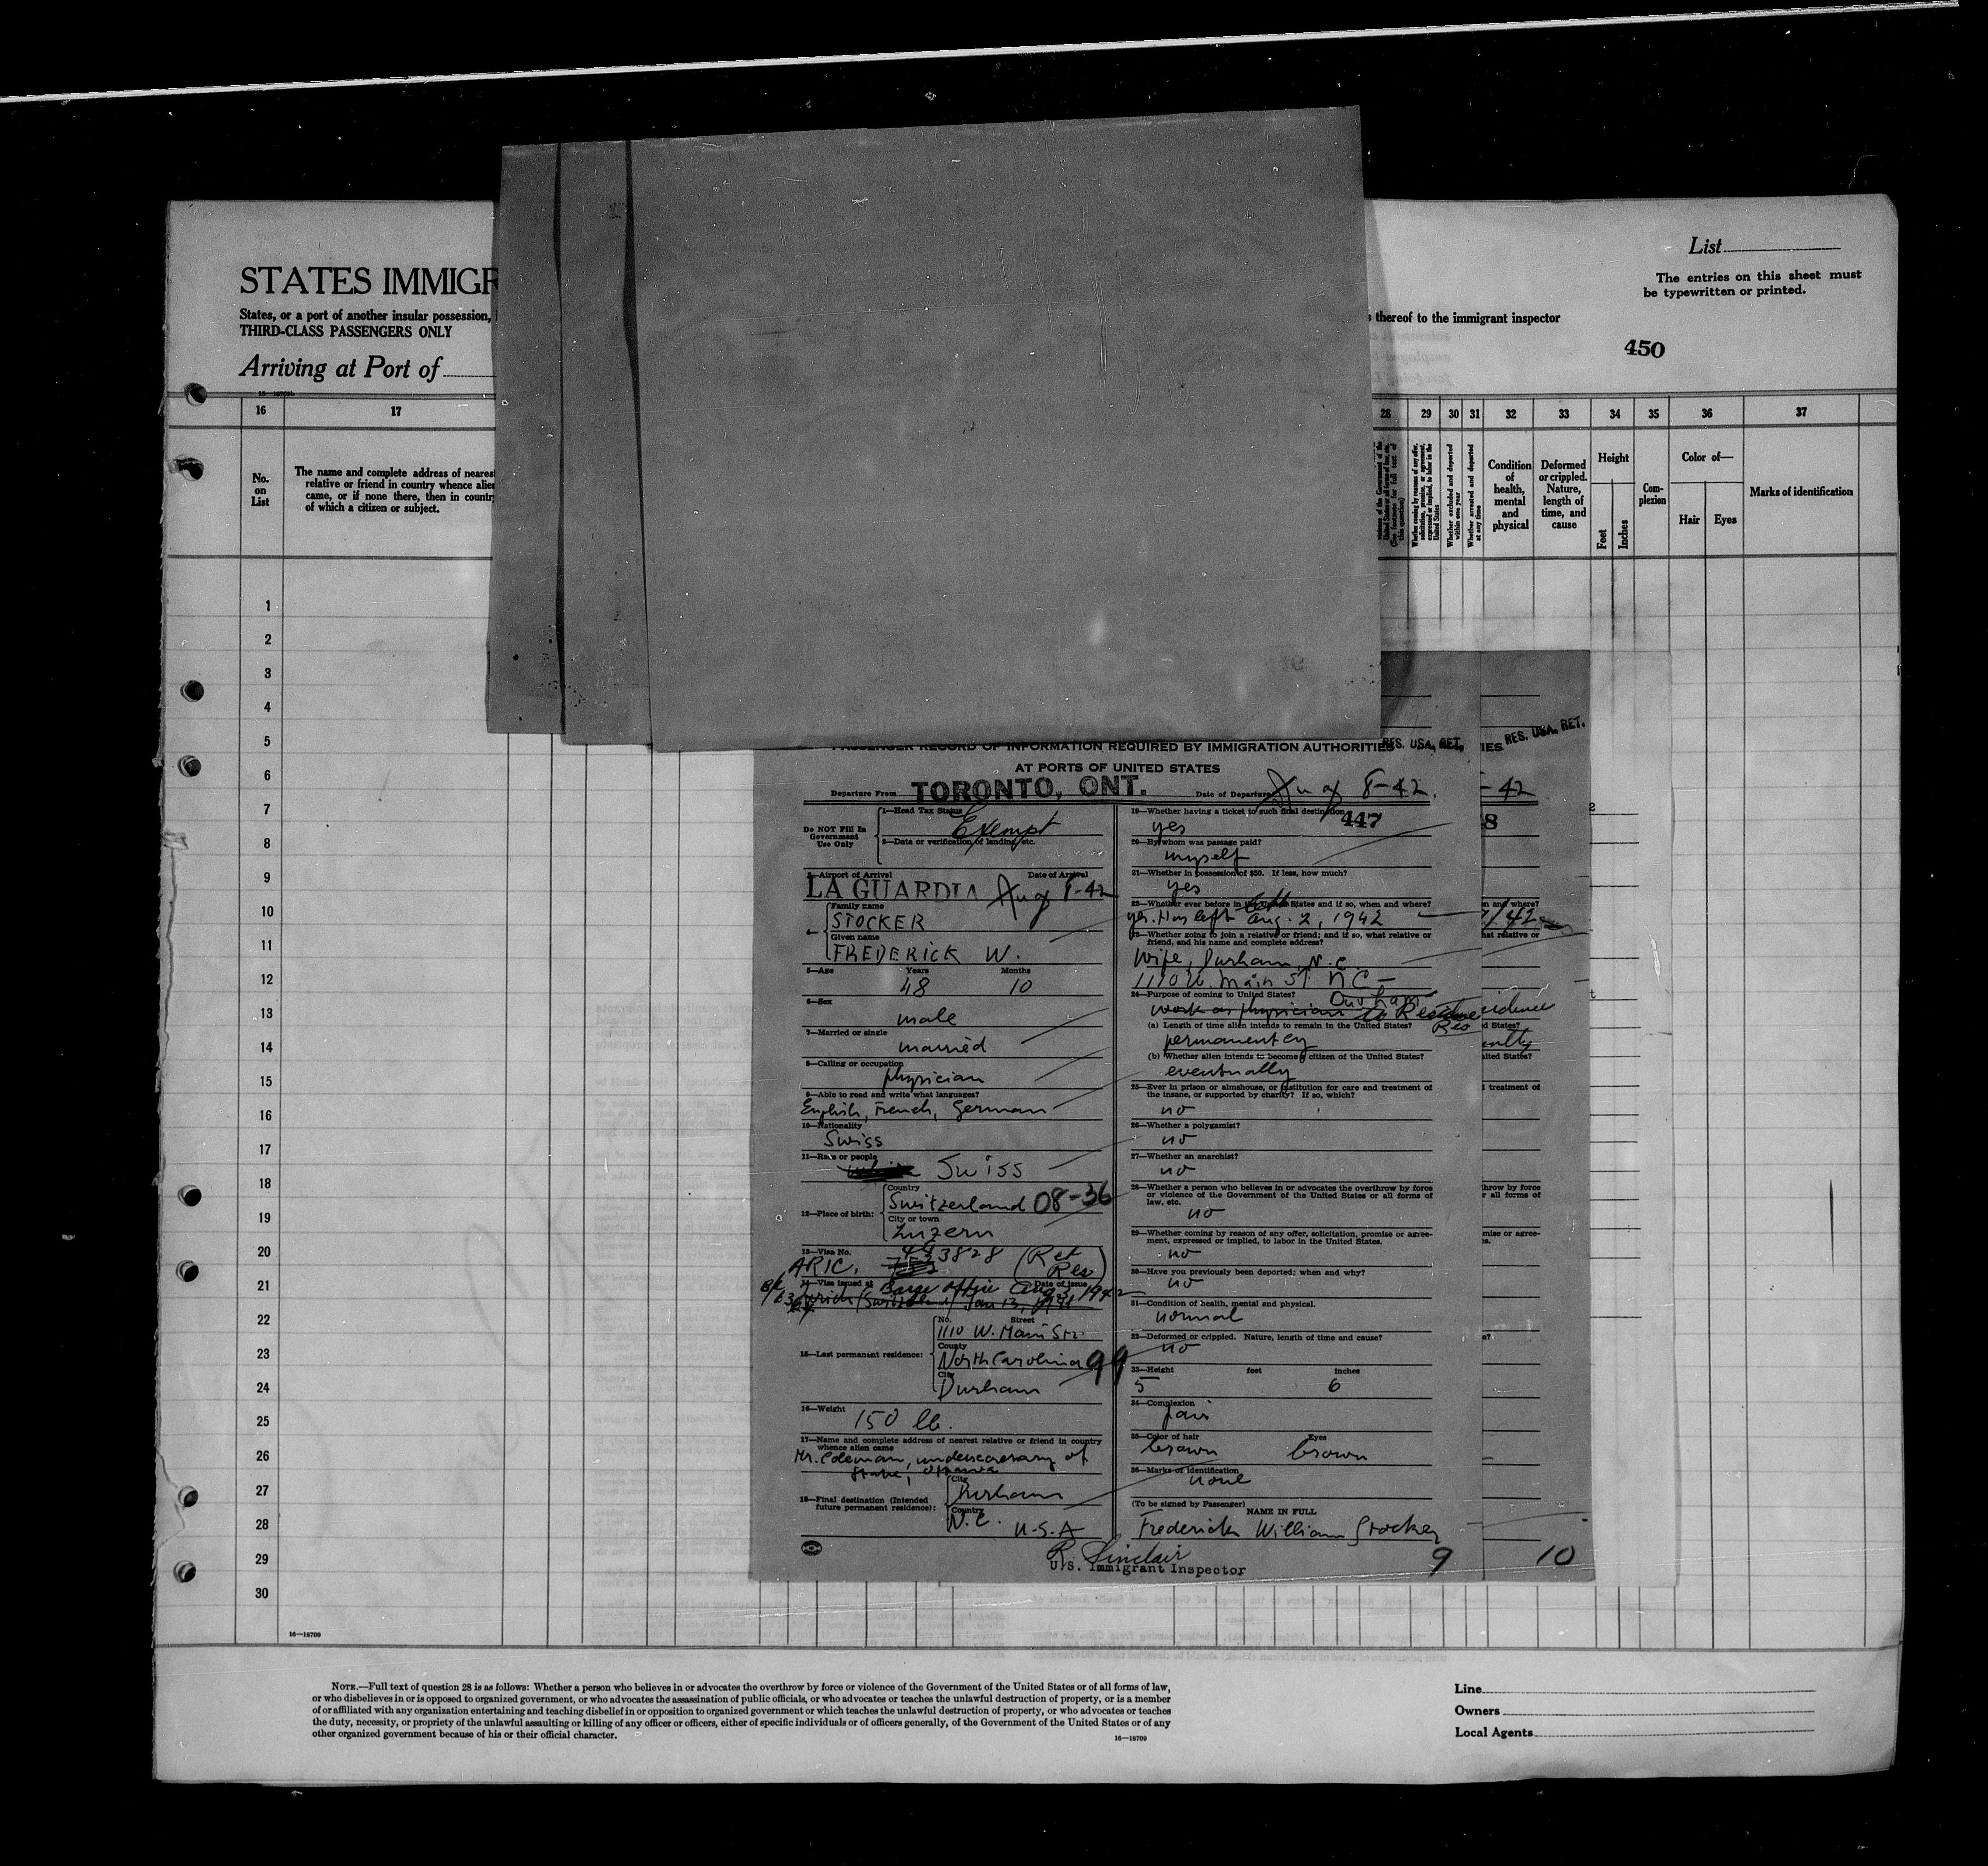 List
The entries on this sheet must
be typewritten or printed.
STATES IMMIGR
States, or a port of another insular possession,
THIRD-CLASS PASSENGERS ONLY
s thereof to the immigrant inspector
450
Arriving at Port of
16 17
28 29 30 31 32 33 34 35 36 37
No.
on
List
The name and complete address of nearest
relative or friend in country whence alien
came, or if none there, then in country
of which a citizen or subject.
Whether excluded and deported
within one year
Whether arrested and deported
at any time
Condition
of
health,
mental
and
physical
Deformed
or crippled.
Nature,
length of
time, and
cause
Height
Feet
Inches
Com-
plexion
Color of—
Hair Eyes
Marks of identification
1
2
3
4
5
6
7
8
9
10
11
12
13
14
15
16
17
18
19
20
21
22
23
24
25
26
27
28
29
30
16—18709
PASSENGER RECORD OF INFORMATION REQUIRED BY IMMIGRATION AUTHORITIES
RES. USA, RET.
IES RES. USA, RET.
AT PORTS OF UNITED STATES
Departure From TORONTO, ONT. Date of Departure Aug 8-42.
-42
Do NOT Fill In
Government
Use Only
1—Head Tax Status
Exempt
2—Data or verification of landing, etc.
3—Airport of Arrival Date of Arrival
LA GUARDIA Aug 8-42
4—
Family name
STOCKER
Given name
FREDERICK W.
5—Age Years Months
48 10
6—Sex
male
7—Married or single
married
8—Calling or occupation
physician
9—Able to read and write what languages?
English, French, German
10—Nationality
Swiss
11—Race or people
Swiss
12—Place of birth:
Country
Switzerland 08-36
City or town
Luzern
13—Visa No.
ARIC. 3828 (Ret
Res)
14—Visa issued at Date of issue
Barge Office Aug 3, 1942
Zurich (Switzerland) Jan 13, 1941
15—Last permanent residence:
No. Street
1110 W. Main Str.
County
North Carolina 99
City
Durham
16—Weight
150 lb.
17—Name and complete address of nearest relative or friend in country
whence alien came
Mr. Coleman, undersecretary of
State, Ottawa
18—Final destination (Intended
future permanent residence):
City
Durham
Country
N.C. U.S.A
19—Whether having a ticket to such final destination
447
yes
8
20—By whom was passage paid?
myself
21—Whether in possession of $50. If less, how much?
yes
22—Whether ever before in the United States and if so, when and where?
yes. Has left Aug. 2, 1942
23—Whether going to join a relative or friend; and if so, what relative or
friend, and his name and complete address?
Wife, Durham, N.C.
1110 W. Main St NC
Durham
24—Purpose of coming to United States?
work as physician to Residence
Res
(a) Length of time alien intends to remain in the United States?
permanently
(b) Whether alien intends to become a citizen of the United States?
eventually
25—Ever in prison or almshouse, or institution for care and treatment of
the insane, or supported by charity? If so, which?
no
26—Whether a polygamist?
no
27—Whether an anarchist?
no
28—Whether a person who believes in or advocates the overthrow by force
or violence of the Government of the United States or all forms of
law, etc.
no
29—Whether coming by reason of any offer, solicitation, promise or agree-
ment, expressed or implied, to labor in the United States.
no
30—Have you previously been deported; when and why?
no
31—Condition of health, mental and physical.
normal
32—Deformed or crippled. Nature, length of time and cause?
no
33—Height feet inches
5 6
34—Complexion
fair
35—Color of hair Eyes
brown brown
36—Marks of identification
none
(To be signed by Passenger)
NAME IN FULL
Frederick William Stocker
R. Sinclair
U.S. Immigrant Inspector
9
10
NOTE.—Full text of question 28 is as follows: Whether a person who believes in or advocates the overthrow by force or violence of the Government of the United States or of all forms of law,
or who disbelieves in or is opposed to organized government, or who advocates the assassination of public officials, or who advocates or teaches the unlawful destruction of property, or is a member
of or affiliated with any organization entertaining and teaching disbelief in or opposition to organized government or which teaches the unlawful destruction of property, or who advocates or teaches
the duty, necessity, or propriety of the unlawful assaulting or killing of any officer or officers, either of specific individuals or of officers generally, of the Government of the United States or of any
other organized government because of his or their official character.
16—18709
Line
Owners
Local Agents